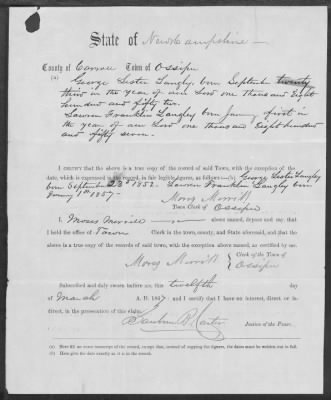 State of New Hampshire
County of Carroll Town of Ossipee
(a)
George Lester Langley born September twenty
third in the year of our Lord one thousand Eight
hundred and fifty two.
Lauren Franklin Langley born January first in
the year of our Lord one thousand Eight hundred
and fifty seven.
I CERTIFY that the above is a true copy of the record of said Town, with the exception of the
date, which is expressed in the record, in fair legible figures, as follows:—(b) George Lester Langley
born September 23d 1852. Lauren Franklin Langley born
January 1st 1857.
Moses Merrill
Town Clerk of Ossipee
I, Moses Merrill above named, depose and say, that
I hold the office of Town Clerk in the town, county, and State aforesaid, and that the
above is a true copy of the records of said town, with the exception above named, as certified by me.
Moses Merrill Clerk of the Town of
Ossipee
Subscribed and duly sworn before me, this twelfth day
of March A. D. 186 and I certify that I have no interest, direct or in-
direct, in the prosecution of this claim.
Sanborn B. Carter
Justice of the Peace.
(a) Here fill an exact transcript of the record, except that, instead of copying the figures, the dates must be written out in full.
(b) Here give the date exactly as it is in the record.